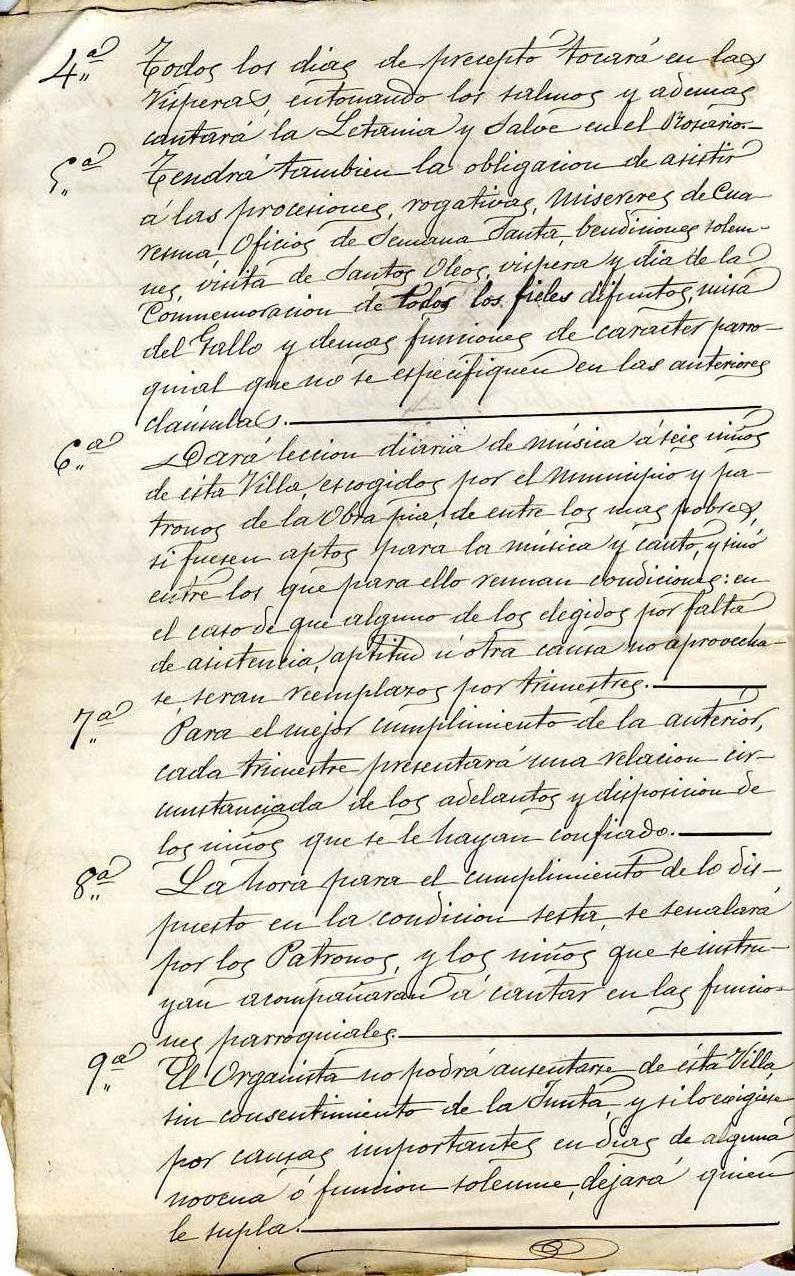 4.ª Todos los dias de precepto tocará en las
Visperas, entonando los salmos y ademas
cantará la Letania y Salve en el Rosario.—
5.ª Tendrá tambien la obligacion de asistir
á las procesiones, rogativas, Misereres de Cua-
resma, Oficios de Semana Santa, bendiciones solem-
nes, visita de Santos Oleos, vispera y dia de la
Conmemoracion de todos los fieles difuntos, misa
del Gallo y demas funciones de caracter parro-
quial que no se especifiquen en las anteriores
claúsulas.
6.ª Dará leccion diaria de música á seis niños
de ésta Villa, escogidos por el Municipio y pa-
tronos de la Obra pia, de entre los mas pobres,
si fuesen aptos para la música y canto, y sinó
entre los que para ello reunan condiciones: en
el caso de que alguno de los elegidos por falta
de asistencia, aptitud ú otra causa no aprovecha-
se, seran reemplazos por trimestres.
7.ª Para el mejor cumplimiento de la anterior,
cada trimestre presentará una relacion cir-
cunstanciada de los adelantos y disposicion de
los niños que se le hayan confiado.
8.ª La hora para el cumplimiento de lo dis-
puesto en la condicion sesta, se senalará
por los Patronos, y los niños que se instru-
yan acompañaran á cantar en las funcio-
nes parroquiales.
9.ª El Organista no podrá ausentarse de ésta Villa,
sin consentimiento de la Junta, y si lo exigiese
por causas importantes en dias de alguna
novena ó funcion solemne, dejará quien
le supla.